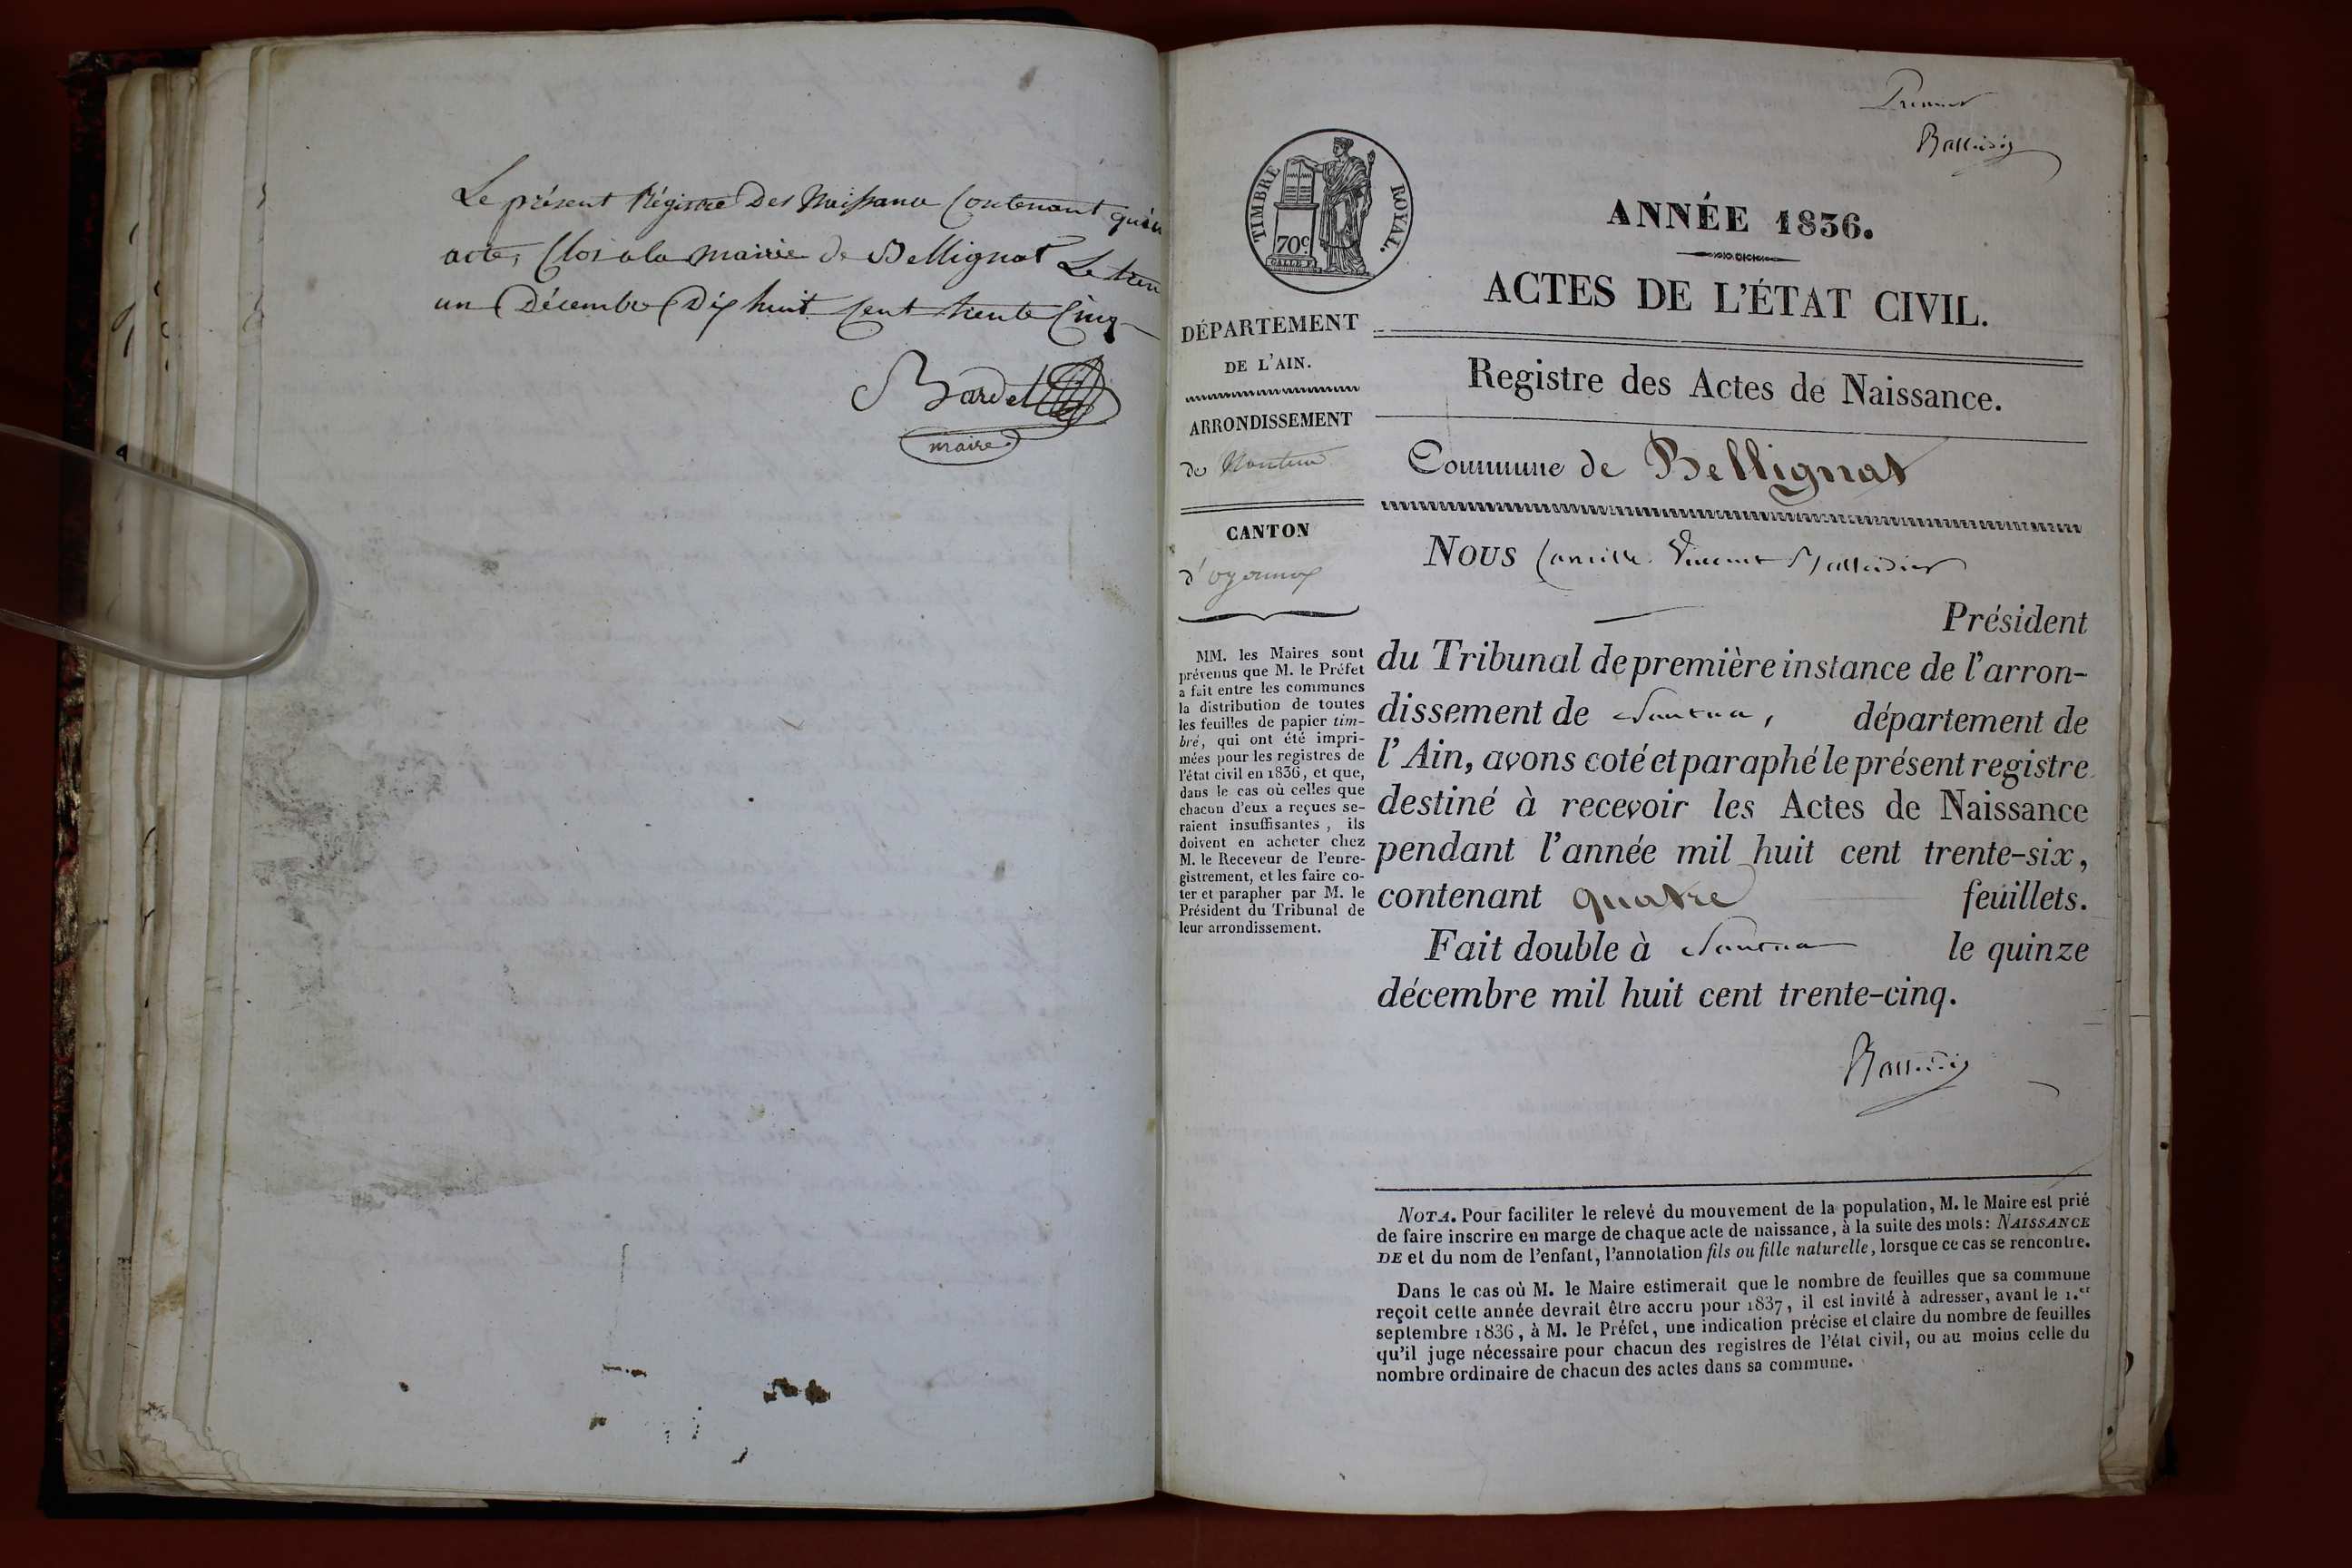 Le présent Régistre Des Naissance Contenant
acte, Clos a la Mairie de Bellignat Le
un Décembre Dix huit Cent trente Cinq
Bardet
maire
Premier
TIMBRE ROYAL.
70c
ANNÉE 1836.
ACTES DE L'ÉTAT CIVIL.
Registre des Actes de Naissance.
Commune de Bellignat
DÉPARTEMENT
DE L'AIN.
ARRONDISSEMENT
de Nantua
CANTON
d'oyonnax
MM. les Maires sont
prévenus que M. le Préfet
a fait entre les communes
la distribution de toutes
les feuilles de papier tim-
bré, qui ont été impri-
mées pour les registres de
l'état civil en 1836, et que,
dans le cas où celles que
chacun d'eux a reçues se-
raient insuffisantes, ils
doivent en acheter chez
M. le Receveur de l'enre-
gistrement, et les faire co-
ter et parapher par M. le
Président du Tribunal de
leur arrondissement.
Nous Camille Vincent
Président
du Tribunal de première instance de l'arron-
dissement de Nantua, département de
l'Ain, avons coté et paraphé le présent registre
destiné à recevoir les Actes de Naissance
pendant l'année mil huit cent trente-six,
contenant quatre feuillets.
Fait double à Nantua le quinze
décembre mil huit cent trente-cinq.
NOTA. Pour faciliter le relevé du mouvement de la population, M. le Maire est prié
de faire inscrire en marge de chaque acte de naissance, à la suite des mots: NAISSANCE
DE et du nom de l'enfant, l'annotation fils ou fille naturelle, lorsque ce cas se rencontre.
Dans le cas où M. le Maire estimerait que le nombre de feuilles que sa commune
reçoit cette année devrait être accru pour 1837, il est invité à adresser, avant le 1.er
septembre 1836, à M. le Préfet, une indication précise et claire du nombre de feuilles
qu'il juge nécessaire pour chacun des registres de l'état civil, ou au moins celle du
nombre ordinaire de chacun des actes dans sa commune.